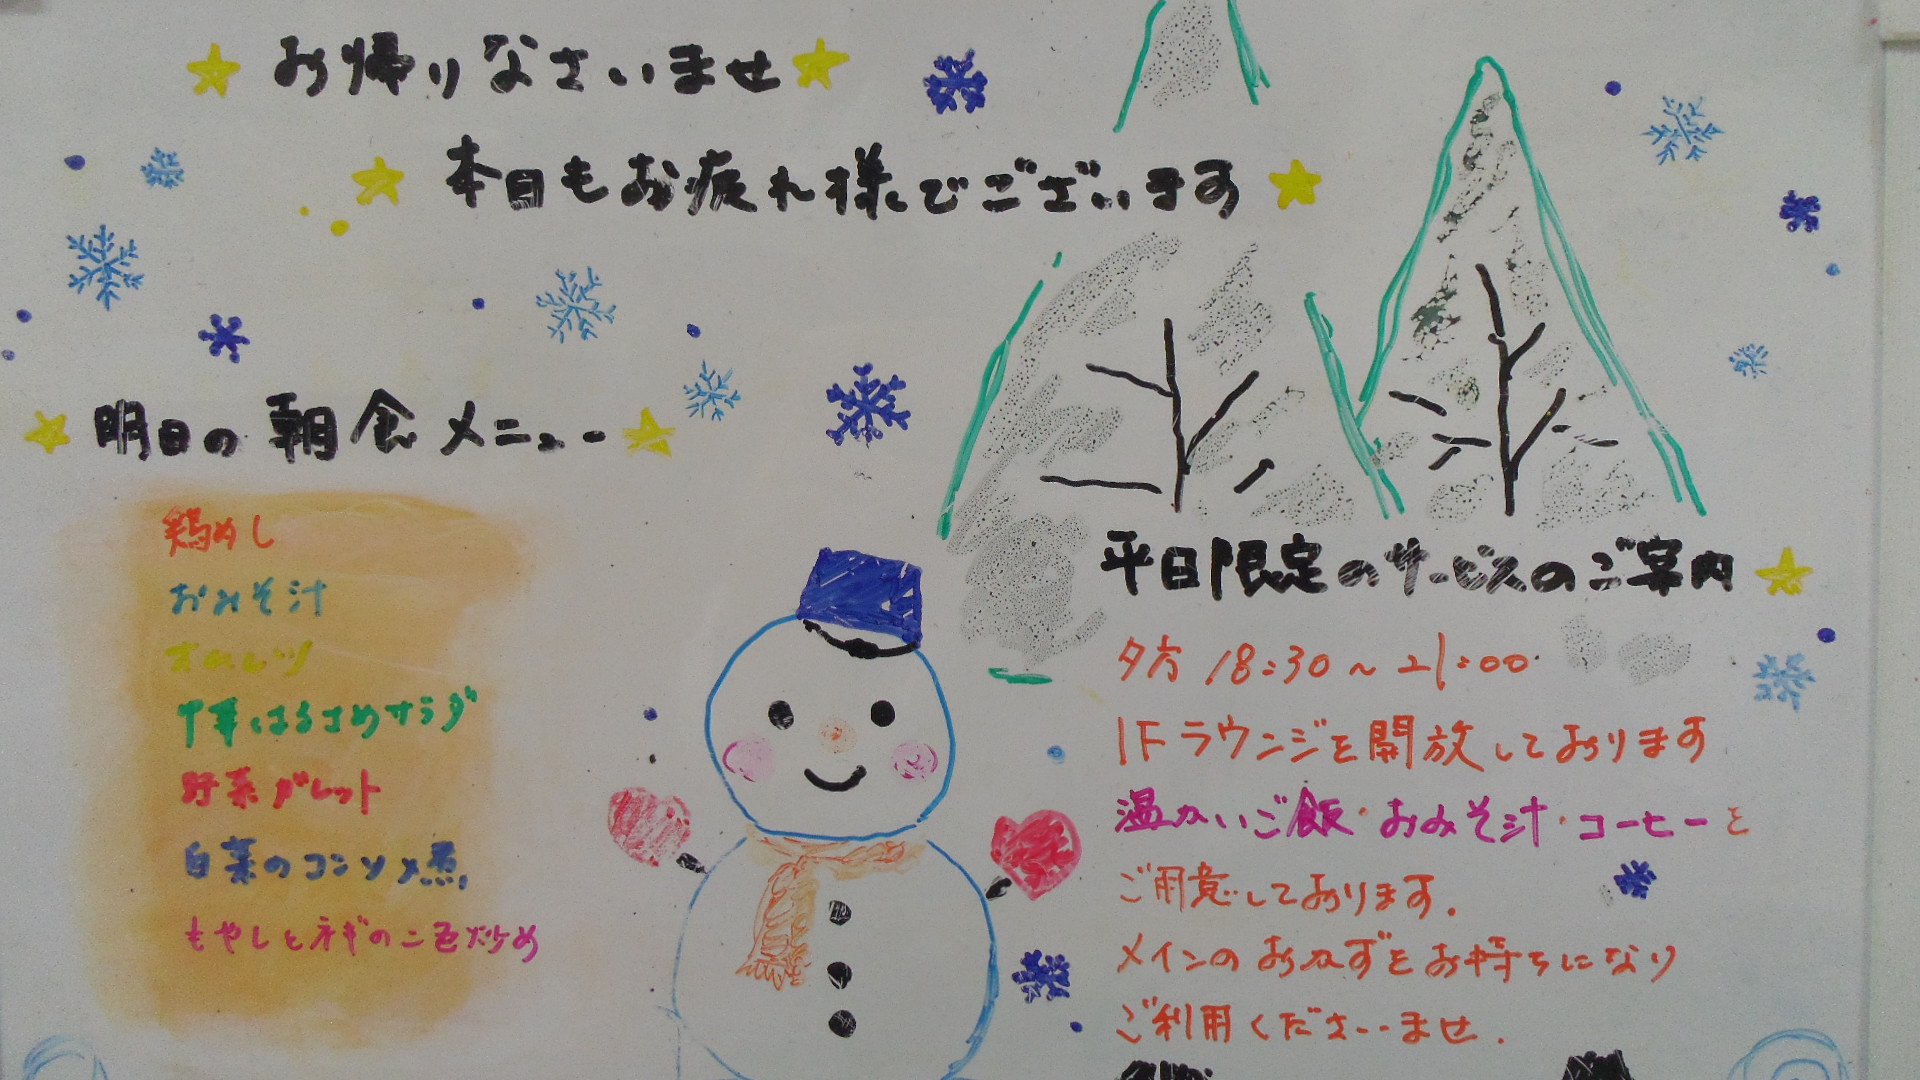 お帰りなさいませ
本日もお疲れ様でございます
明日の朝食メニュー
鶏めし
おみそ汁
オムレツ
千草はるさめサラダ
野菜ガレット
白菜のコンソメ煮
もやしとネギの二色炒め
平日限定のサービスのご案内
夕方 18:30~21:00
1Fラウンジを開放しております
温かいご飯・おみそ汁・コーヒーと
ご用意しております.
メインのおかずをお持ちになり
ご利用くださいませ.